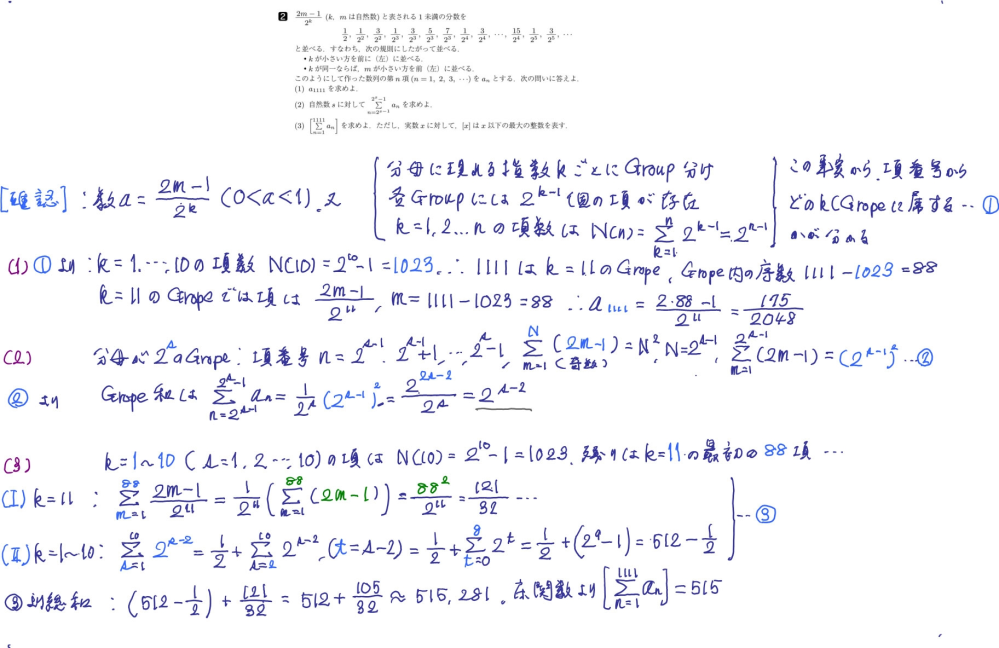 2 \frac{2m-1}{2^k} (k, m は自然数) と表される 1 未満の分数を
\frac{1}{2}, \frac{1}{2^2}, \frac{3}{2^2}, \frac{1}{2^3}, \frac{3}{2^3}, \frac{5}{2^3}, \frac{7}{2^3}, \frac{1}{2^4}, \frac{3}{2^4}, …, \frac{15}{2^4}, \frac{1}{2^5}, \frac{3}{2^5}, …
と並べる. すなわち, 次の規則にしたがって並べる.
• k が小さい方を前に（左）に並べる.
• k が同一ならば, m が小さい方を前（左）に並べる.
このようにして作った数列の第 n 項 (n = 1, 2, 3, …) を a_n とする. 次の問いに答えよ.
(1) a_{1111} を求めよ.
(2) 自然数 s に対して \sum_{n=2^{s-1}}^{2^s-1} a_n を求めよ.
(3) [\sum_{n=1}^{1111} a_n] を求めよ. ただし, 実数 x に対して, [x] は x 以下の最大の整数を表す.
[確認] : 数a = \frac{2m-1}{2^k} (0<a<1). 又
分母に現れる指数 k ごとに Group 分け
各Groupには 2^{k-1} 個の項が存在
k=1,2...n の項数は N(n) = \sum_{k=1}^{n} 2^{k-1} = 2^{n-1}
この事実から, 項番号から
どのkのGropeに属する … ①
かが分かる
(1) ①より : k=1, …, 10 の項数 N(10) = 2^{10}-1 = 1023. ∴ 1111 は k=11のGrope, Grope内の序数 1111-1023=88
k=11 の Grope では項は \frac{2m-1}{2^{11}}, m=1111-1023=88 ∴ a_{1111} = \frac{2·88-1}{2^{11}} = \frac{175}{2048}
(2) 分母が 2^s の Grope : 項番号 n = 2^{s-1}, 2^{s-1}+1, …, 2^s-1, \sum_{m=1}^{N} (2m-1) (奇数) = N^2, N=2^{s-1}, \sum_{m=1}^{2^{s-1}} (2m-1) = (2^{s-1})^2 … ②
② より Grope 和は \sum_{n=2^{s-1}}^{2^s-1} a_n = \frac{1}{2^s} (2^{s-1})^2 = \frac{2^{2s-2}}{2^s} = 2^{s-2}
(3) k=1~10 (s=1, 2 …, 10) の項は N(10) = 2^{10}-1 = 1023. 残りは k=11 の最初の 88 項 …
(I) k=11 : \sum_{m=1}^{88} \frac{2m-1}{2^{11}} = \frac{1}{2^{11}} (\sum_{m=1}^{88} (2m-1)) = \frac{88^2}{2^{11}} = \frac{121}{32} …
(II) k=1~10 : \sum_{s=1}^{10} 2^{s-2} = \frac{1}{2} + \sum_{s=2}^{10} 2^{s-2}, (t=s-2) = \frac{1}{2} + \sum_{t=0}^{8} 2^t = \frac{1}{2} + (2^9-1) = 512 - \frac{1}{2}
… ③
③より総和 : (512 - \frac{1}{2}) + \frac{121}{32} = 512 + \frac{105}{32} ≈ 515,281. 床関数より [\sum_{n=1}^{1111} a_n] = 515